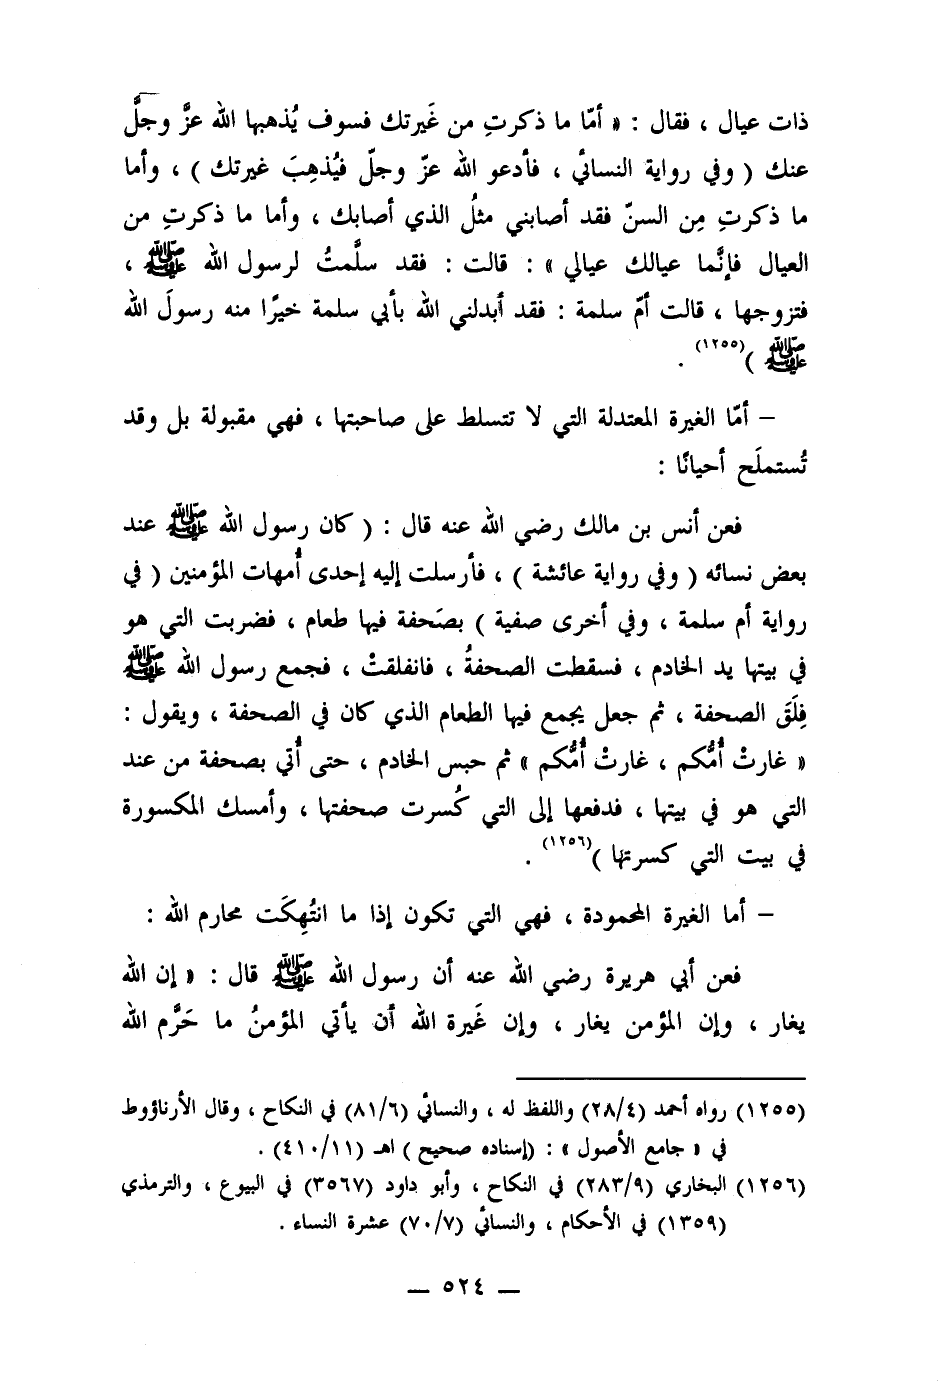 ذات عيال ، فقال : « أمّا ما ذكرتِ من غَيرتك فسوف يُذهبها الله عزَّ وجلَّ
عنك ( وفي رواية النسائي ، فأدعو الله عزّ وجلّ فيُذهِبَ غيرتك ) ، وأما
ما ذكرتِ مِن السنّ فقد أصابني مثلُ الذي أصابك ، وأما ما ذكرتِ من
العيال فإنَّما عيالك عيالي » : قالت : فقد سلَّمتُ لرسول الله ﷺ ،
فتزوجها ، قالت أمّ سلمة : فقد أبدلني الله بأبي سلمة خيرًا منه رسولَ الله
ﷺ )(١٢٥٥) .
– أمّا الغيرة المعتدلة التي لا تتسلط على صاحبتها ، فهي مقبولة بل وقد
تُستملَح أحيانًا :
فعن أنس بن مالك رضي الله عنه قال : ( كان رسول الله ﷺ عند
بعض نسائه ( وفي رواية عائشة ) ، فأرسلت إليه إحدى أُمهات المؤمنين ( في
رواية أم سلمة ، وفي أخرى صفية ) بصَحفة فيها طعام ، فضربت التي هو
في بيتها يد الخادم ، فسقطت الصحفةُ ، فانفلقتْ ، فجمع رسول الله ﷺ
فِلَقَ الصحفة ، ثم جعل يجمع فيها الطعام الذي كان في الصحفة ، ويقول :
« غارتْ أُمُّكم ، غارتْ أُمُّكم » ثم حبس الخادم ، حتى أُتي بصحفة من عند
التي هو في بيتها ، فدفعها إلى التي كُسرت صحفتها ، وأمسك المكسورة
في بيت التي كسرتها )(١٢٥٦) .
– أما الغيرة المحمودة ، فهي التي تكون إذا ما انتُهِكَت محارم الله :
فعن أبي هريرة رضي الله عنه أن رسول الله ﷺ قال : « إن الله
يغار ، وإن المؤمن يغار ، وإن غَيرة الله أن يأتي المؤمنُ ما حَرَّم الله
(١٢٥٥) رواه أحمد (٢٨/٤) واللفظ له ، والنسائي (٨١/٦) في النكاح ، وقال الأرناؤوط
في « جامع الأصول » : (إسناده صحيح ) اهـ (٤١٠/١١) .
(١٢٥٦) البخاري (٢٨٣/٩) في النكاح ، وأبو داود (٣٥٦٧) في البيوع ، والترمذي
(١٣٥٩) في الأحكام ، والنسائي (٧٠/٧) عشرة النساء .
— ٥٢٤ —